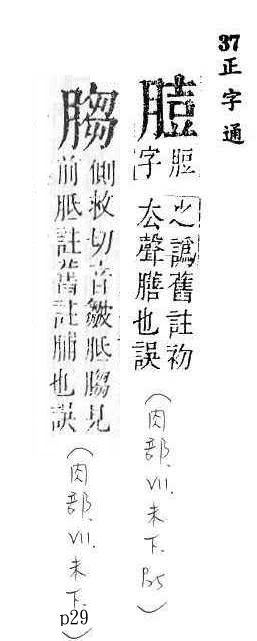 37正字通
之譌舊註初
字厺聲膳也誤
（肉部、VII.未下.P5）
䐢
側救切音皺胝䐢見
前胝註舊註脯也誤
（肉部、VII.未下.p29）